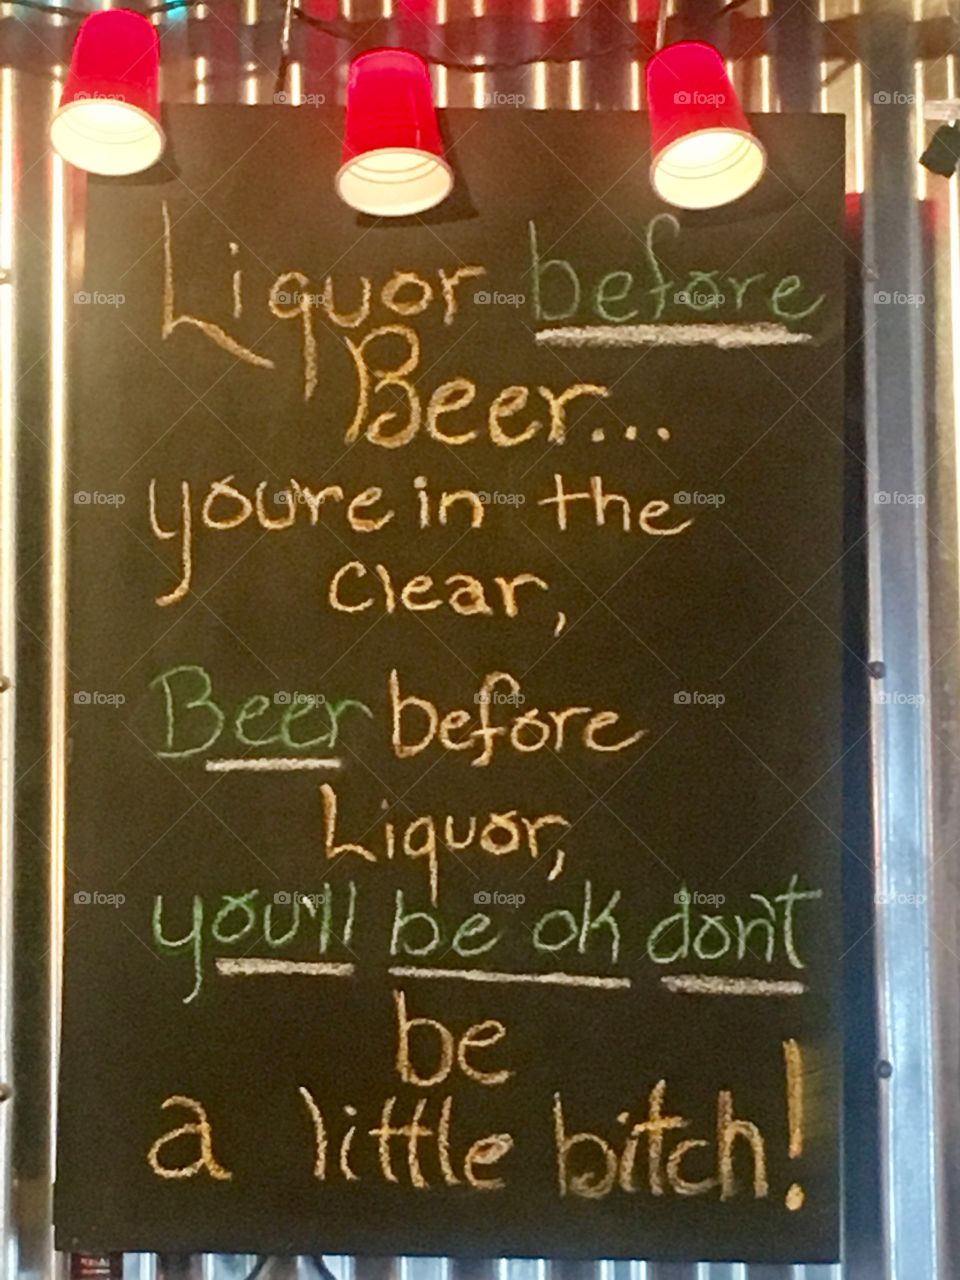 Liquor before
Beer...
you're in the
clear,
Beer before
Liquor,
you'll be ok don't
be
a little bitch!